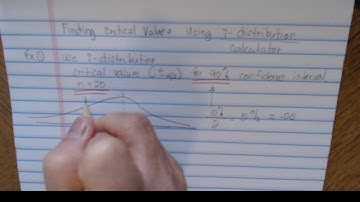 Finding Critical Values using T-distribution
calculator
Ex ① use T-distribution
critical values (tα/2) for 90% confidence interval,
n=20
10%
2 = 5% = .05